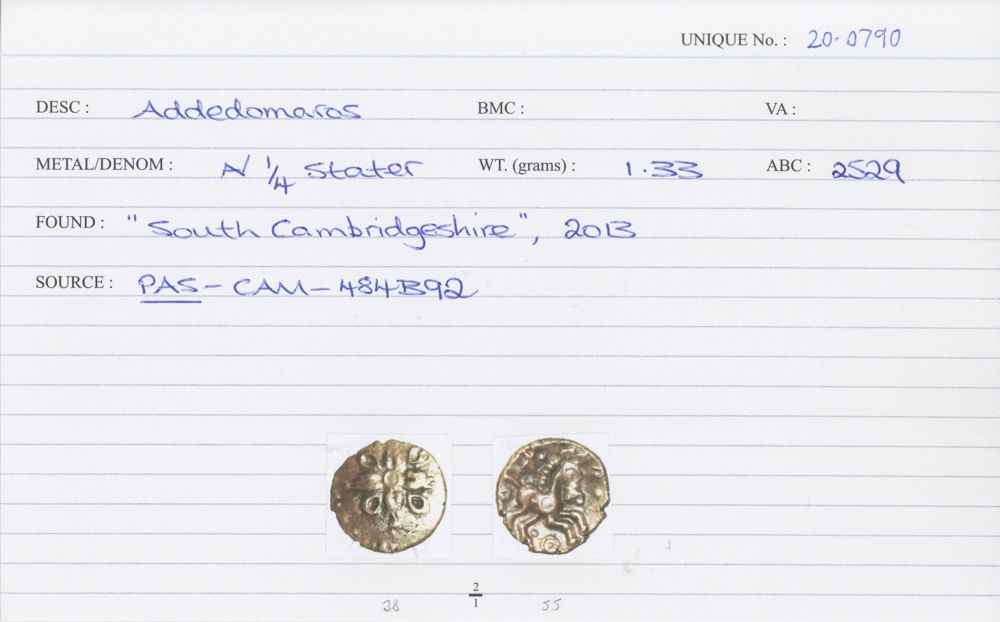 UNIQUE No. : 20-0790
DESC : Addedomaros BMC : VA :
METAL/DENOM : A/ 1/4 Stater WT. (grams) : 1.33 ABC : 2529
FOUND : "South Cambridgeshire", 2013
SOURCE : PAS - CAM - 484B92
2/1
38 55